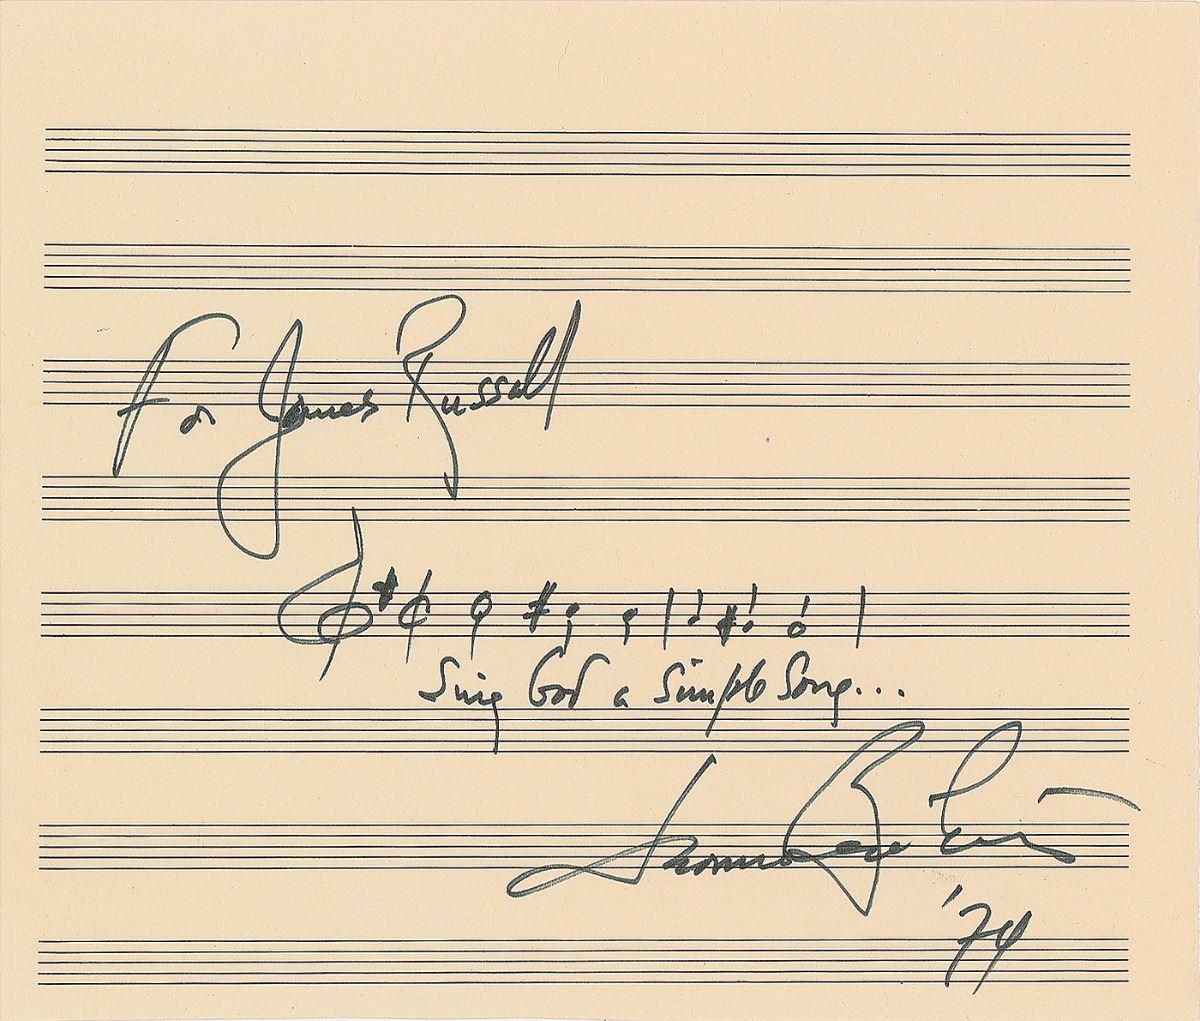 For James Russell
Sing God a Simple Song...
Leonard Bernstein
'74